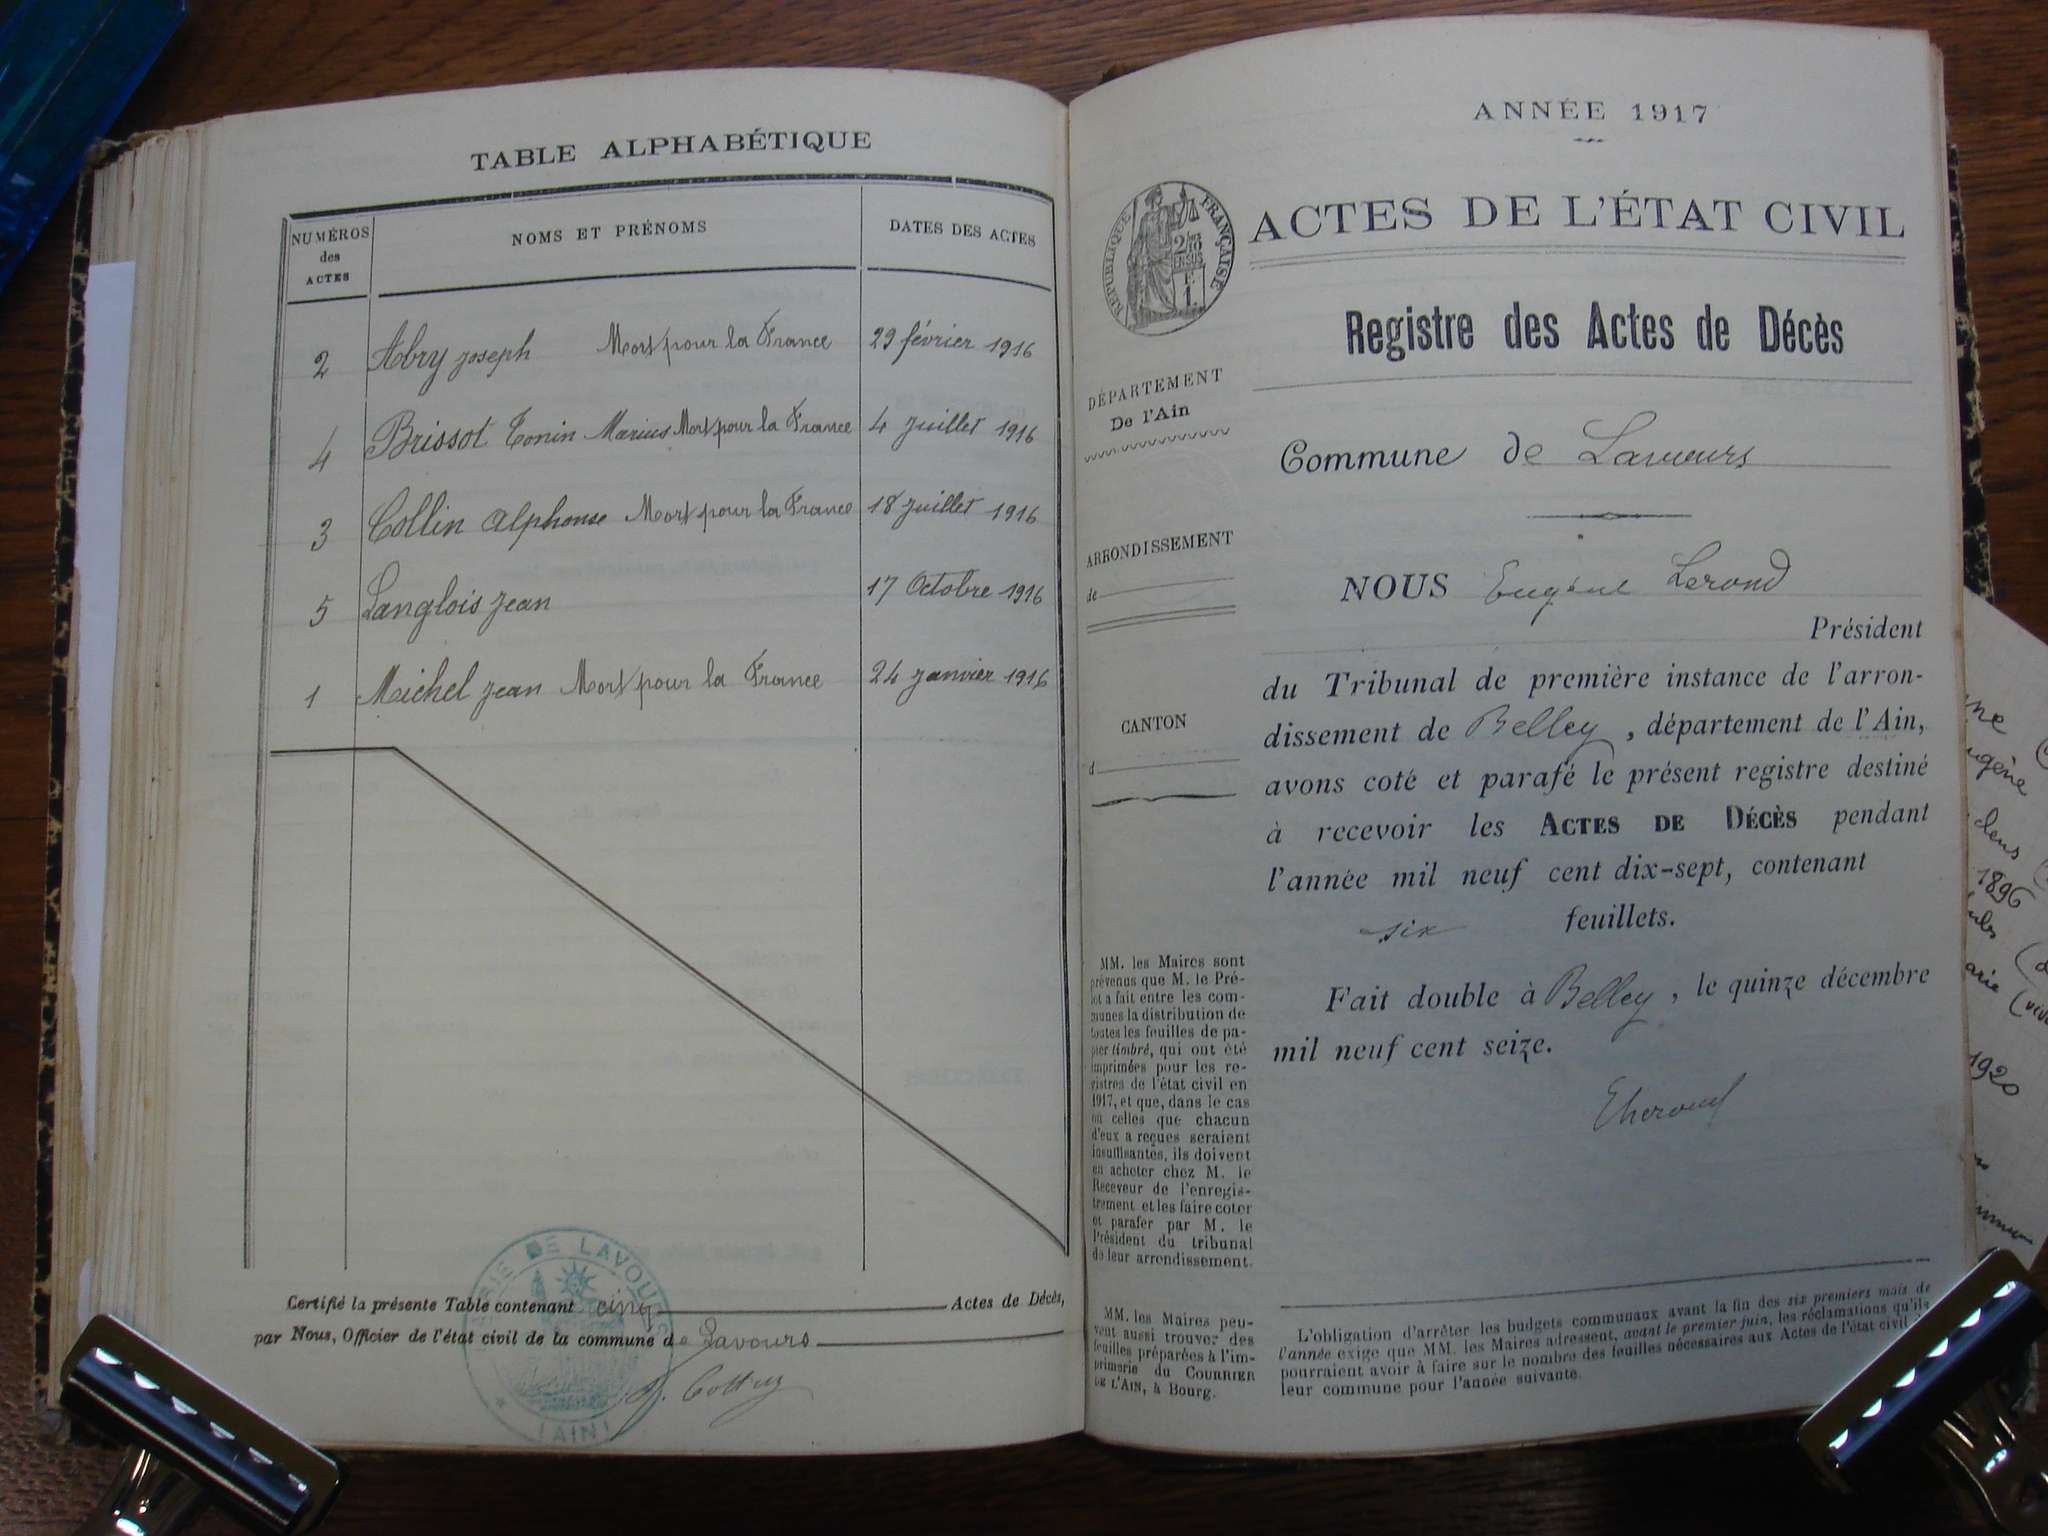 TABLE ALPHABÉTIQUE
NUMÉROS des ACTES NOMS ET PRÉNOMS DATES DES ACTES
2 Abry Joseph Mort pour la France 29 février 1916
4 Brissot Tonin Marius Mort pour la France 4 Juillet 1916
3 Collin Alphonse Mort pour la France 18 Juillet 1916
5 Langlois Jean 17 Octobre 1916
1 Michel Jean Mort pour la France 24 Janvier 1916
Certifié la présente Table contenant cinq Actes de Décès,
par Nous, Officier de l'état civil de la commune de Lavours
MAIRIE DE LAVOURS
(AIN)
ANNÉE 1917
ACTES DE L'ÉTAT CIVIL
RÉPUBLIQUE FRANÇAISE
Registre des Actes de Décès
DÉPARTEMENT
De l'Ain
ARRONDISSEMENT
de
CANTON
d
MM. les Maires sont
prévenus que M. le Pré-
fet a fait entre les com-
munes la distribution de
toutes les feuilles de pa-
pier timbré, qui ont été
imprimées pour les re-
gistres de l'état civil en
1917, et que, dans le cas
où celles que chacun
d'eux a reçues seraient
insuffisantes, ils doivent
en acheter chez M. le
Receveur de l'enregis-
trement et les faire coter
et parafer par M. le
Président du tribunal
de leur arrondissement.
MM. les Maires peu-
vent aussi trouver des
feuilles préparées à l'im-
primerie du COURRIER
DE L'AIN, à Bourg.
Commune de Lavours
NOUS Eugène Lerond
Président
du Tribunal de première instance de l'arron-
dissement de Belley, département de l'Ain,
avons coté et parafé le présent registre destiné
à recevoir les ACTES DE DÉCÈS pendant
l'année mil neuf cent dix-sept, contenant
six feuillets.
Fait double à Belley, le quinze décembre
mil neuf cent seize.
L'obligation d'arrêter les budgets communaux avant la fin des six premiers mois de
l'année exige que MM. les Maires adressent, avant le premier juin, les réclamations qu'ils
pourraient avoir à faire sur le nombre des feuilles nécessaires aux Actes de l'état civil
leur commune pour l'année suivante.
1896
1920